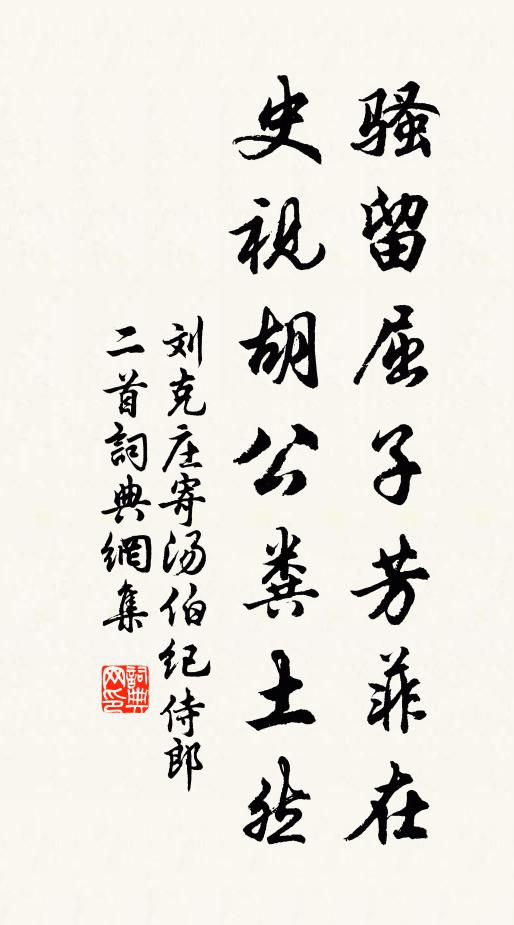 骚留屈子芳菲在
史视胡公粪土然
刘克庄寄汤伯纪侍郎
二首詞典網集
詞典网印